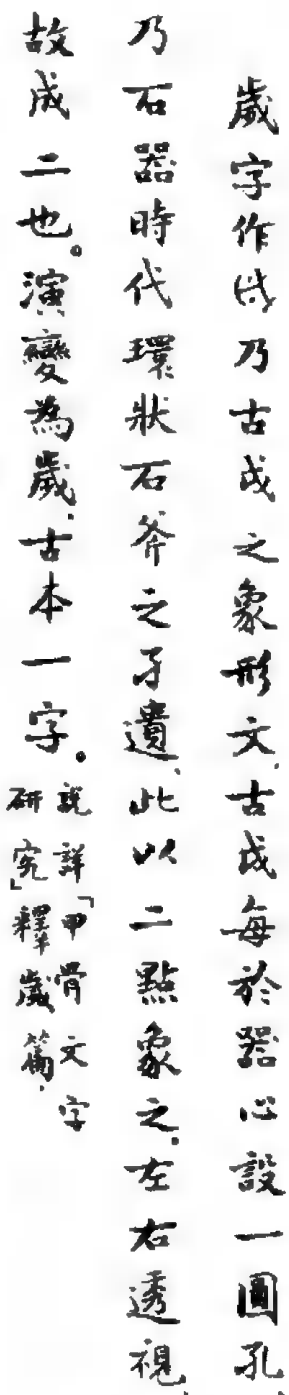 歲字作𢧀乃古戉之象形文、古戉每於器心設一圓孔、
乃石器時代環狀石斧之孑遺、此以二點象之、左右透視、
故成二也。演變為歲、古本一字。
說詳「甲骨文字
研究」釋歲篇、